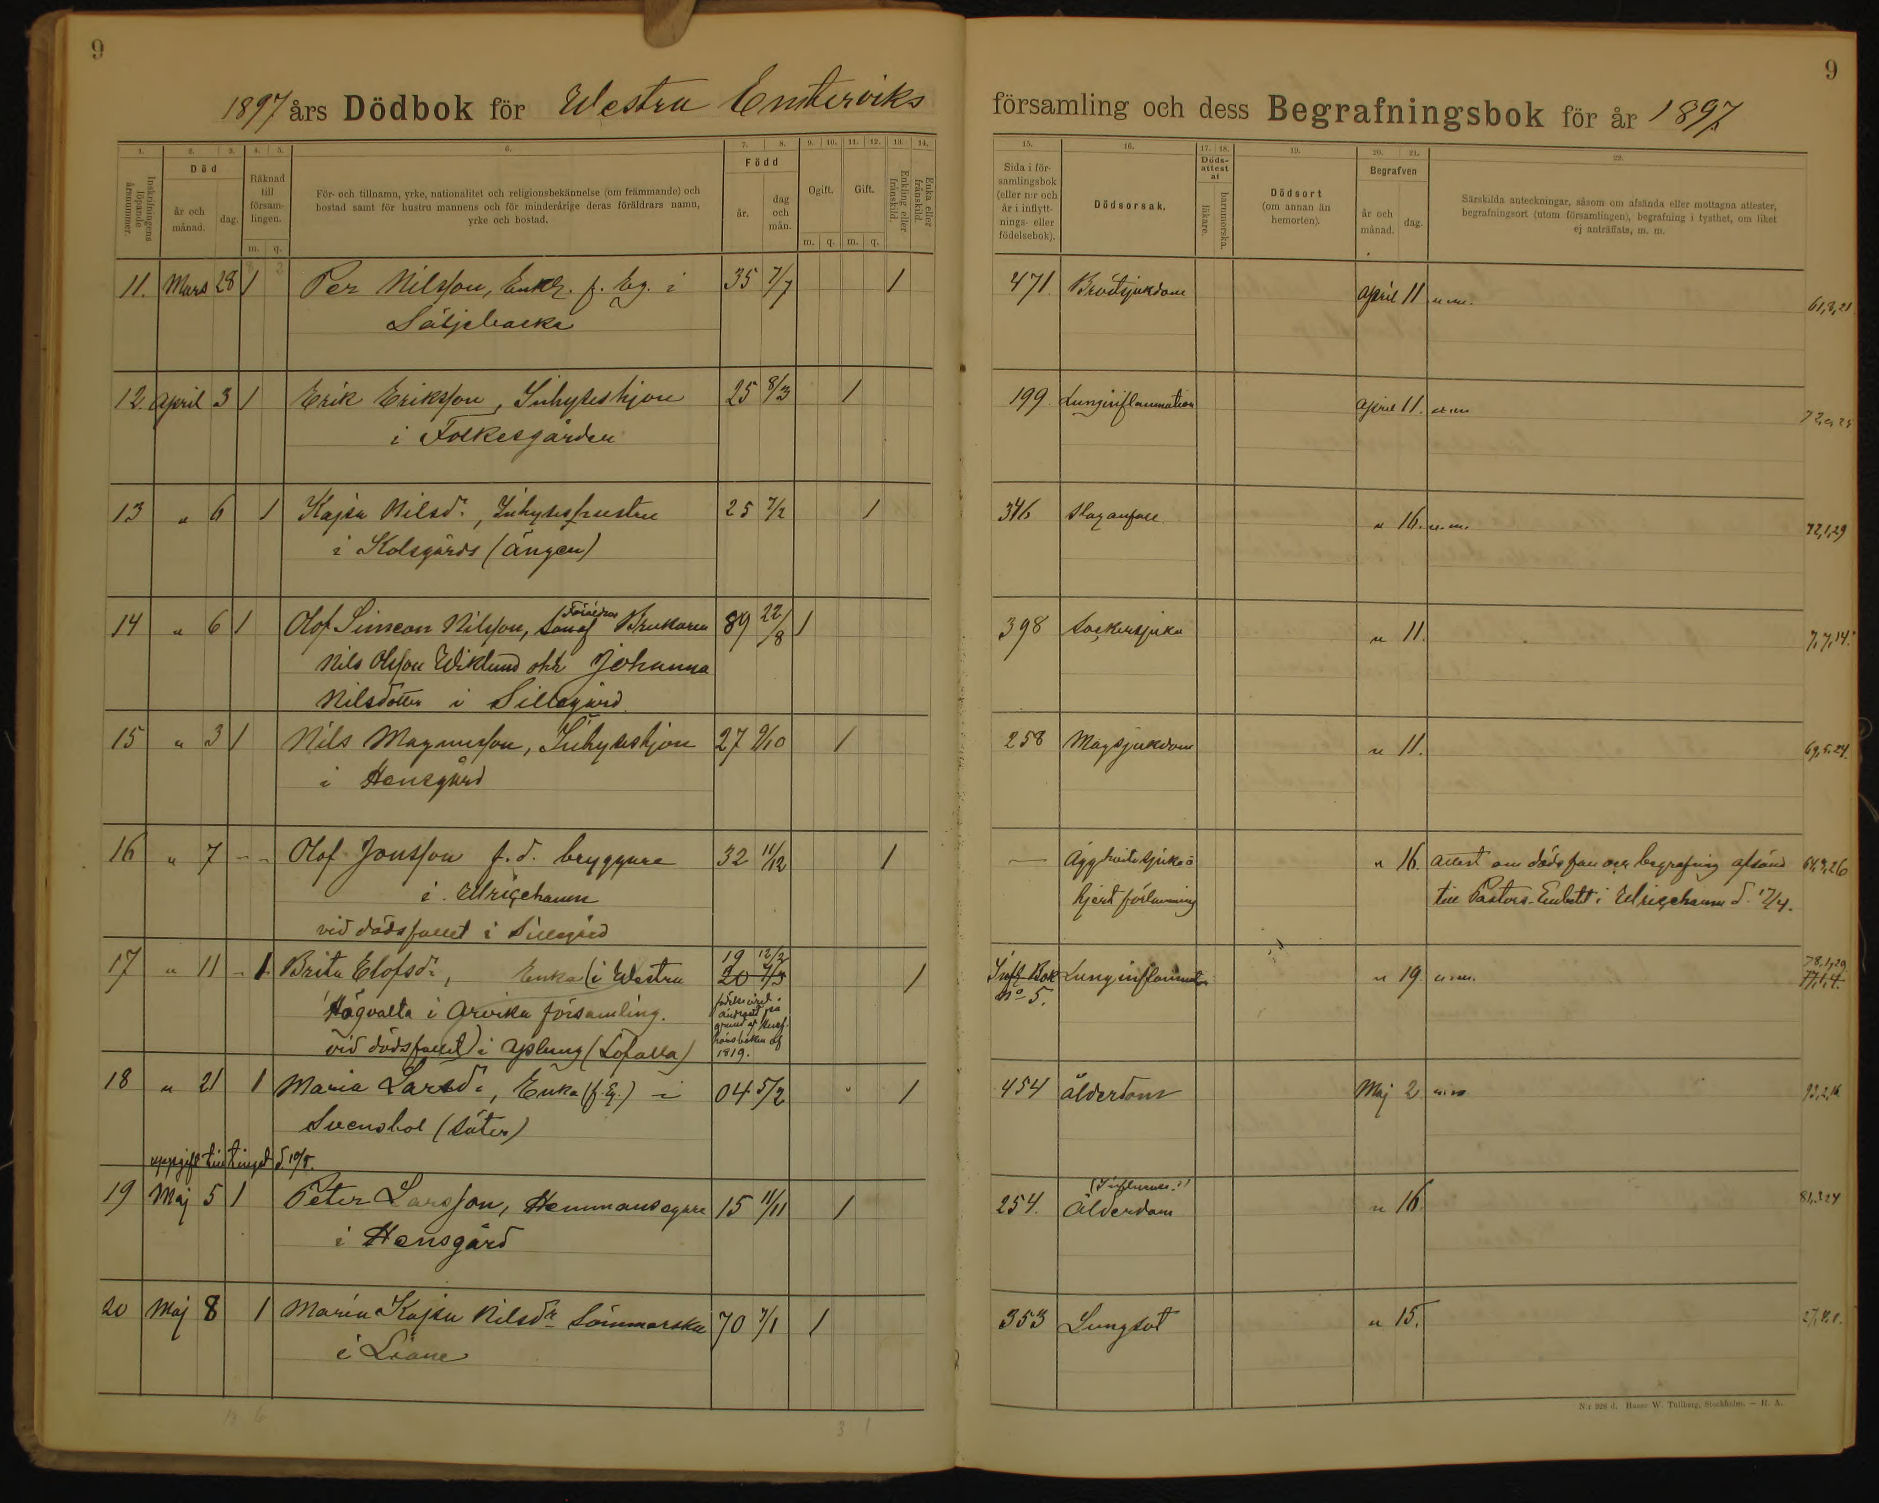 9
1897 års Dödbok för Westra Emterviks
1. 2. 3. 4. 5. 6. 7. 8. 9. 10. 11. 12. 13. 14.
Inskrifningens löpande årsnummer.
Död
år och månad.
dag.
Räknad till försam- lingen.
m. q.
För- och tillnamn, yrke, nationalitet och religionsbekännelse (om främmande) och
bostad samt för hustru mannens och för minderårige deras föräldrars namn,
yrke och bostad.
Född
år.
dag och mån.
Ogift.
m. q.
Gift.
m. q.
Enkling eller frånskild.
Enka eller frånskild.
11. Mars 28 1 Per Nilsson, Enkl. f. Eg. i 35 7/7 1
Säljebacka
12. April 3 1 Erik Eriksson, Inhyseshjon 25 8/3 1
i Folkesgården
13 " 6 1 Kajsa Nilsdr, Inhyseshustru 25 7/2 1
i Kolsgårds (Ängen)
Föräldrar
14 " 6 1 Olof Simeon Nilsson, Son af Brukaren 89 22/8 1
Nils Olsson Wiklund och Johanna
Nilsdotter i Sillegård.
15 " 3 1 Nils Magnusson, Inhyseshjon 27 9/10 1
i Hensgård
16 " 7 - - Olof Jonsson f.d. bryggare 32 11/12 1
i Ulricehamn
vid dödsfallet i Sillegård
19 12/2
17 " 11 - 1 Brita Elofsdr, Enka (i Westra 20 7/3 1
Högvalta i Arvika församling.
födelseåret
ändradt på
grund af
husförhörsboken af
1819.
vid dödsfallet) i Yplung (Löfalla)
18 " 21 1 Maria Larsdr, Enka (f. Eg.) i 04 5/2 1
Svensbol (Säter)
uppgift till tinget d. 10/5.
19 Maj 5 1 Peter Larsson, Hemmansegare 15 11/11 1
i Hensgård
20 Maj 8 1 Maria Kajsa Nilsdr Sömmerska 70 7/1 1
i Liane
3 1
9
församling och dess Begrafningsbok för år 1897.
15. 16. 17. 18. 19. 20. 21. 22.
Sida i för-
samlingsbok
(eller n:r och
år i inflytt-
nings- eller
födelsebok).
Dödsorsak.
Döds-
attest
af
läkare.
barnmorska.
Dödsort
(om annan än
hemorten).
Begrafven
år och månad.
dag.
Särskilda anteckningar, såsom om afsända eller mottagna attester,
begrafningsort (utom församlingen), begrafning i tysthet, om liket
ej anträffats, m. m.
471. Bröstsjukdom April 11
199 Lunginflammation April 11.
346 Slaganfall. " 16. 72,1,29
398 Sockersjuka " 11. 7,7,14.
258 Magsjukdom " 11.
— Ägghvitesjuka o " 16. attest om dödsfall och begrafning afsänd 64,3,26
hjertförlamning till Pastors-Embetet i Ulricehamn d. 17/4.
78,1,29
Infl. Bok Lunginflammation " 19 77,1,4.
No 5.
454 Ålderdom Maj 2 93,2,16
(Influensa?)
254. Ålderdom " 16. 81,5,24
353 Lungsot " 15.
N:r 928 d. Hasse W. Tullberg, Stockholm. — H. A.